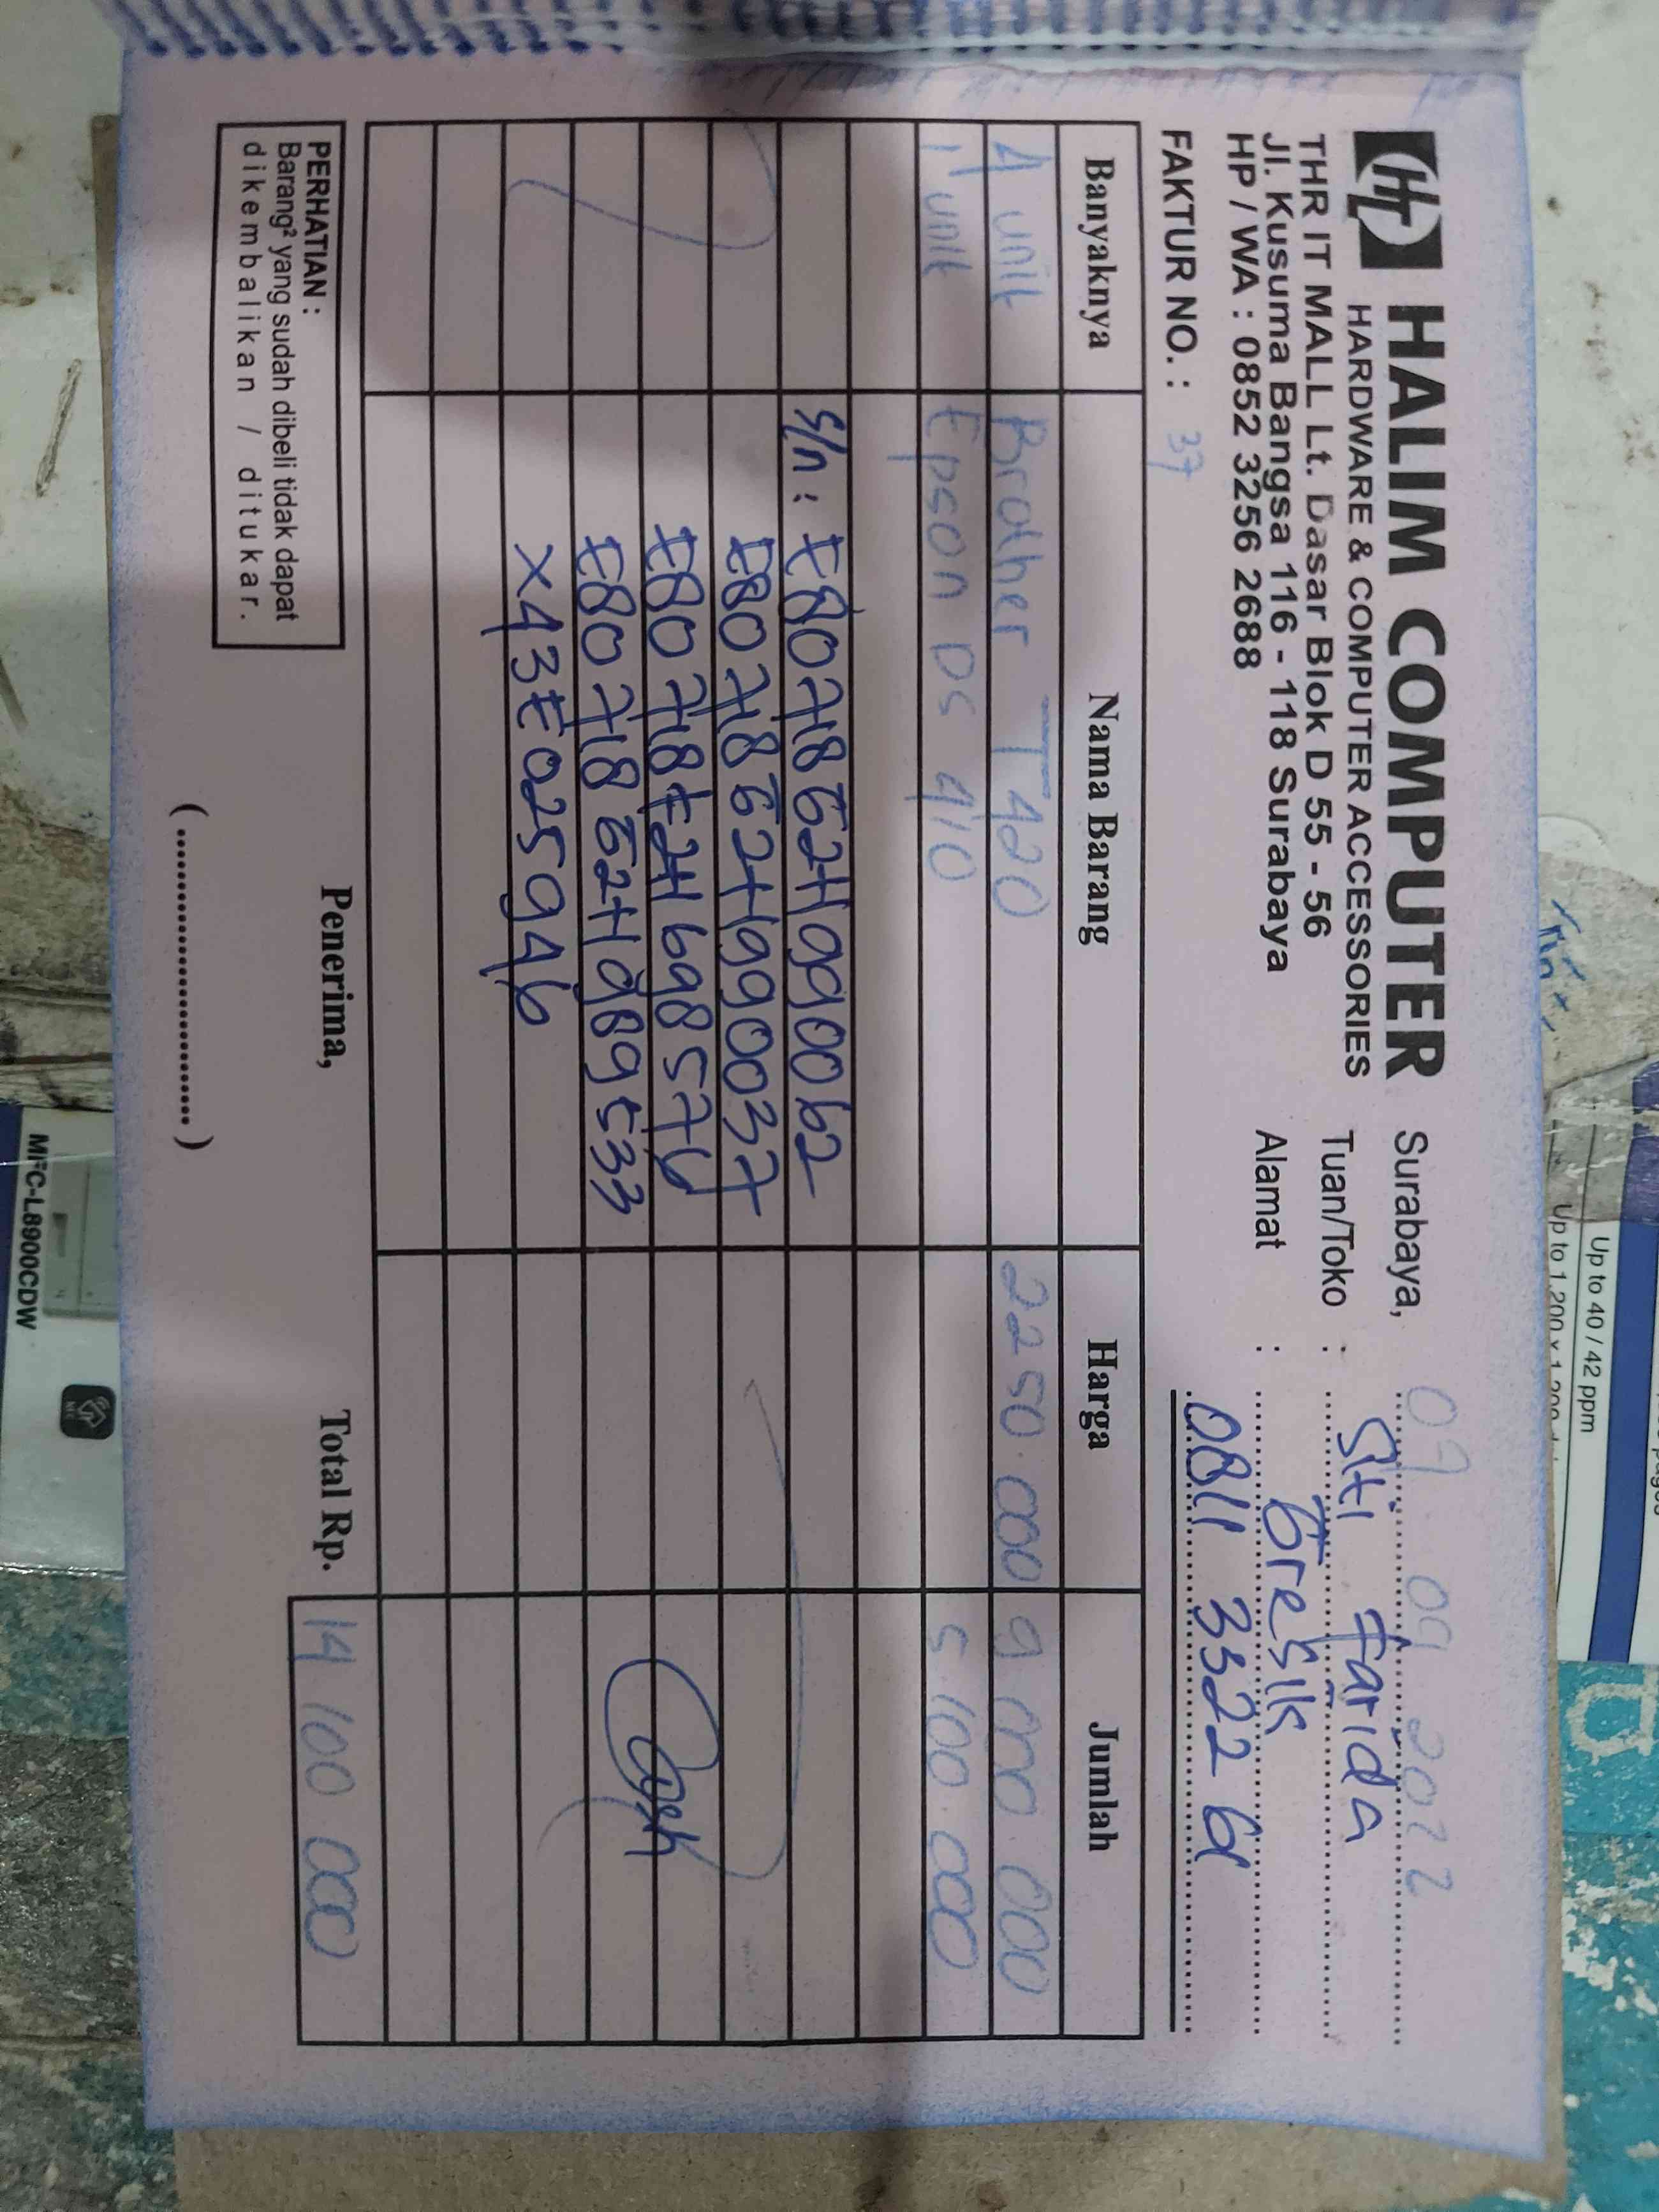 HALIM COMPUTER
HARDWARE & COMPUTER ACCESSORIES
THR IT MALL Lt. Dasar Blok D 55 - 56
Jl. Kusuma Bangsa 116 - 118 Surabaya
HP / WA : 0852 3256 2688
Surabaya, 07 09 2022
Tuan/Toko : Siti Farida
Alamat : Gresik
0811 3322 61
FAKTUR NO. : 37
Banyaknya Nama Barang Harga Jumlah
4 unit Brother T420 2250.000 9 000 000
1 unit Epson DS 410 5.100.000
S/n : E80718G2H990062
E80718G2H990037
E80718E2H698576
E80718G2H989533
X43E025946
Cash
PERHATIAN :
Barang² yang sudah dibeli tidak dapat
dikembalikan / ditukar.
Penerima,
(..............................)
Total Rp. 14 100 000
Up to 40 / 42 ppm
MFC-L8900CDW